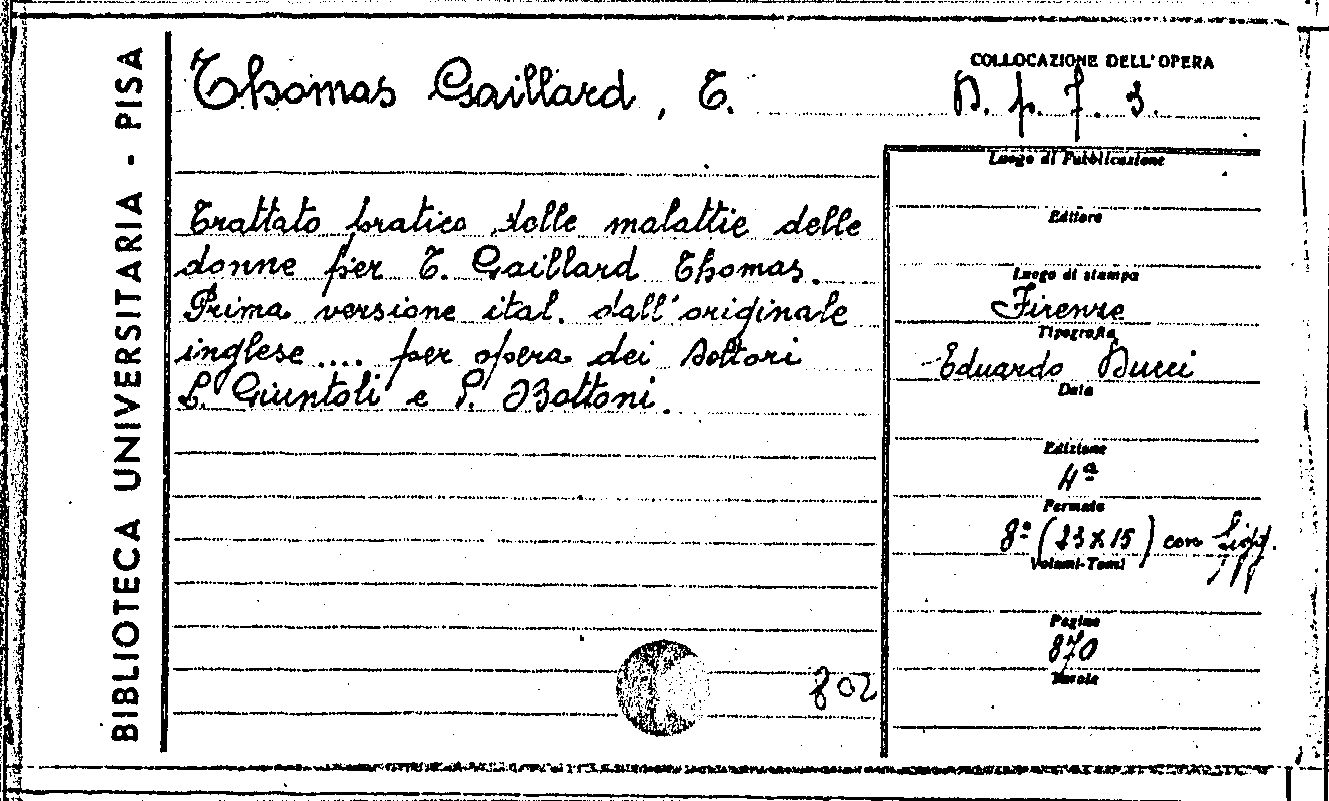 BIBLIOTECA UNIVERSITARIA - PISA
Thomas Gaillard, T.
COLLOCAZIONE DELL'OPERA
D. p. 7. 3.
Trattato pratico delle malattie delle
donne per T. Gaillard Thomas.
Prima versione ital. dall'originale
inglese .... per opera dei dottori
L. Giuntoli e P. Bottoni.
802
Luogo di Pubblicazione
Editore
Luogo di stampa
Firenze
Tipografia
Eduardo Ducci
Data
Edizione
4ª
Formato
8º (23 x 15) con
Volumi-Tomi
Pagine
870
Tavole